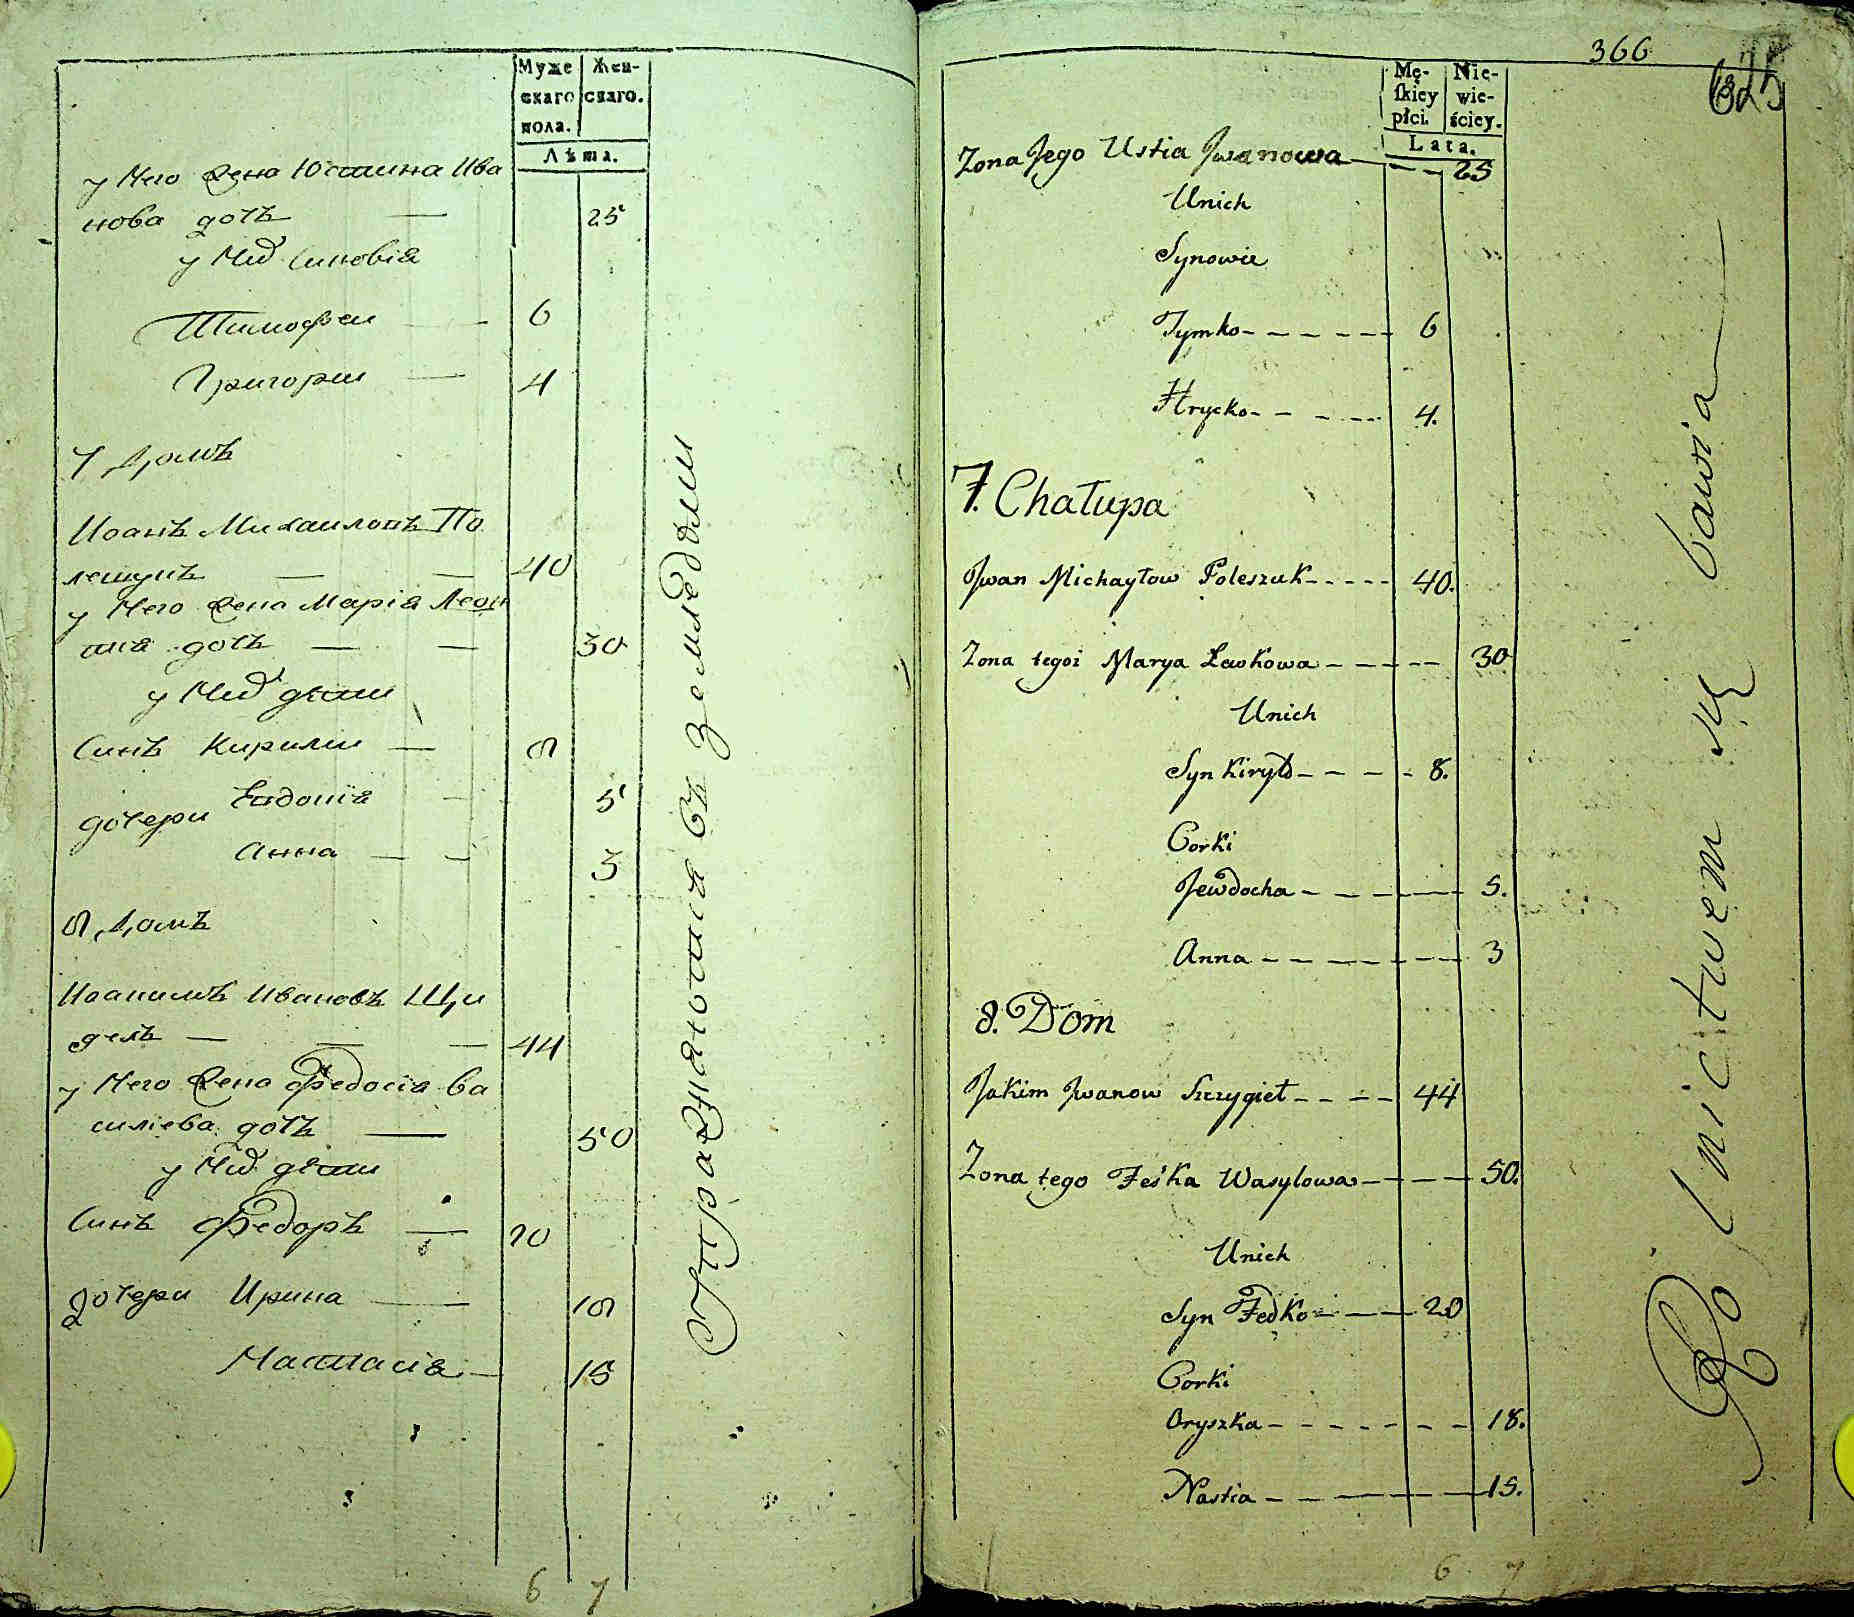 Муже
скаго
пола.
Жен-
скаго.
Лѣта.
у Него Жена Юстина Ива
нова дочь — 25
у Них Синовія
Тимофеи — 6
Григории — 4
7 Домъ
Иоанъ Михаиловъ По
лещукъ — — 40
у Него Жена Марія Леон
тия дочь — — 30
у Них дѣти
Синъ Кирилли — 8
дочери Евдокія — 5
Анна — — 3
8 Домъ
Иоакимъ Ивановъ Щи
гелъ — — — 44
у Него Жена Федосія Ва
силіева дочь — 50
у Них дѣти
Синъ Федоръ — 20
дочери Ирина — 18
Настасія — 15
Упражняются въ земледѣлии
6 7
366
Mę-
skiey
płci.
Nie-
wie-
ściey.
Lata.
Zona Jego Ustia Jwanowa — — 25
Unich
Synowie
Tymko - - - - - - 6
Hrycko - - - - - 4.
7. Chałupa
Jwan Michayłow Poleszuk - - - - - 40.
Zona tegoż Marya Lewkowa - - - - - 30
Unich
Syn Kiryło - - - - 8.
Corki
Jewdocha - - - - - 5.
Anna - - - - - - - 3
8. Dom
Jakim Jwanow Szczygieł - - - - 44
Zona tego Feśka Wasylowa - - - - 50.
Unich
Syn Fedko - - - - 20
Corki
Oryszka - - - - - - - 18.
Nastia - - - - - - 15.
Rolnictwem się bawią
6 7